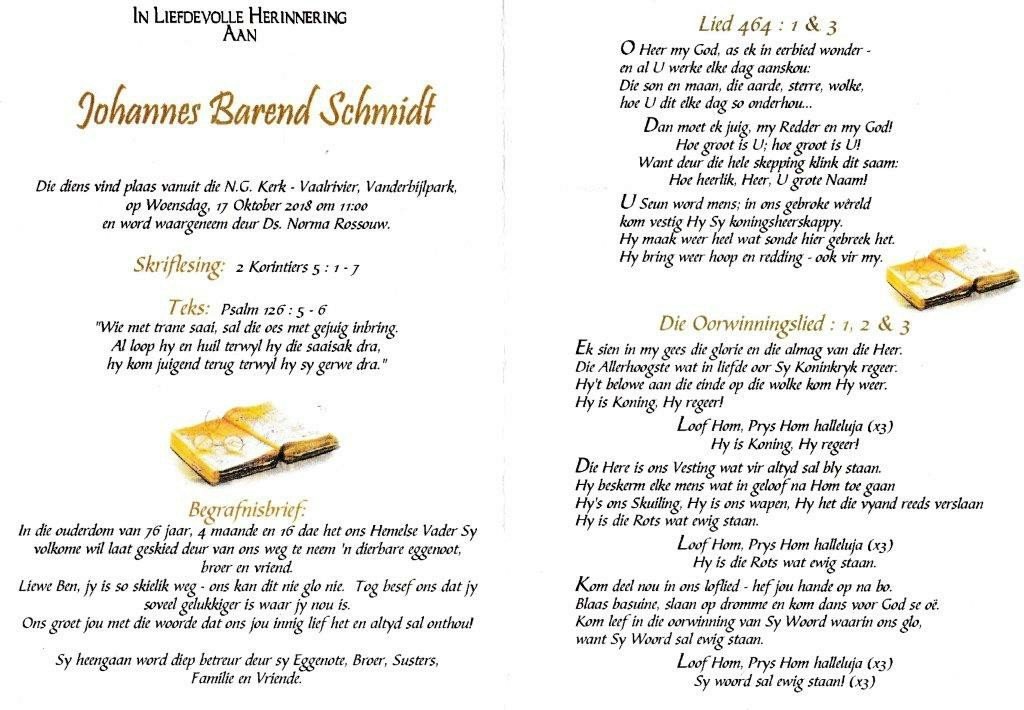 In Liefdevolle Herinnering
Aan
Johannes Barend Schmidt
Die diens vind plaas vanuit die N.G. Kerk - Vaalrivier, Vanderbijlpark,
op Woensdag, 17 Oktober 2018 om 11:00
en word waargeneem deur Ds. Norma Rossouw.
Skriflesing: 2 Korintiers 5 : 1 - 7
Teks: Psalm 126 : 5 - 6
"Wie met trane saai, sal die oes met gejuig inbring.
Al loop hy en huil terwyl hy die saaisak dra,
hy kom juigend terug terwyl hy sy gerwe dra."
Begrafnisbrief:
In die ouderdom van 76 jaar, 4 maande en 16 dae het ons Hemelse Vader Sy
volkome wil laat geskied deur van ons weg te neem 'n dierbare eggenoot,
broer en vriend.
Liewe Ben, jy is so skielik weg - ons kan dit nie glo nie. Tog besef ons dat jy
soveel gelukkiger is waar jy nou is.
Ons groet jou met die woorde dat ons jou innig lief het en altyd sal onthou!
Sy heengaan word diep betreur deur sy Eggenote, Broer, Susters,
Familie en Vriende.
Lied 464 : 1 & 3
O Heer my God, as ek in eerbied wonder -
en al U werke elke dag aanskou:
Die son en maan, die aarde, sterre, wolke,
hoe U dit elke dag so onderhou...
Dan moet ek juig, my Redder en my God!
Hoe groot is U; hoe groot is U!
Want deur die hele skepping klink dit saam:
Hoe heerlik, Heer, U grote Naam!
U Seun word mens; in ons gebroke wêreld
kom vestig Hy Sy koningsheerskappy.
Hy maak weer heel wat sonde hier gebreek het.
Hy bring weer hoop en redding - ook vir my.
Die Oorwinningslied : 1, 2 & 3
Ek sien in my gees die glorie en die almag van die Heer.
Die Allerhoogste wat in liefde oor Sy Koninkryk regeer.
Hy't belowe aan die einde op die wolke kom Hy weer.
Hy is Koning, Hy regeer!
Loof Hom, Prys Hom halleluja (x3)
Hy is Koning, Hy regeer!
Die Here is ons Vesting wat vir altyd sal bly staan.
Hy beskerm elke mens wat in geloof na Hom toe gaan
Hy's ons Skuiling, Hy is ons wapen, Hy het die vyand reeds verslaan
Hy is die Rots wat ewig staan.
Loof Hom, Prys Hom halleluja (x3)
Hy is die Rots wat ewig staan.
Kom deel nou in ons loflied - hef jou hande op na bo.
Blaas basuine, slaan op dromme en kom dans voor God se oë.
Kom leef in die oorwinning van Sy Woord waarin ons glo,
want Sy Woord sal ewig staan.
Loof Hom, Prys Hom halleluja (x3)
Sy woord sal ewig staan! (x3)